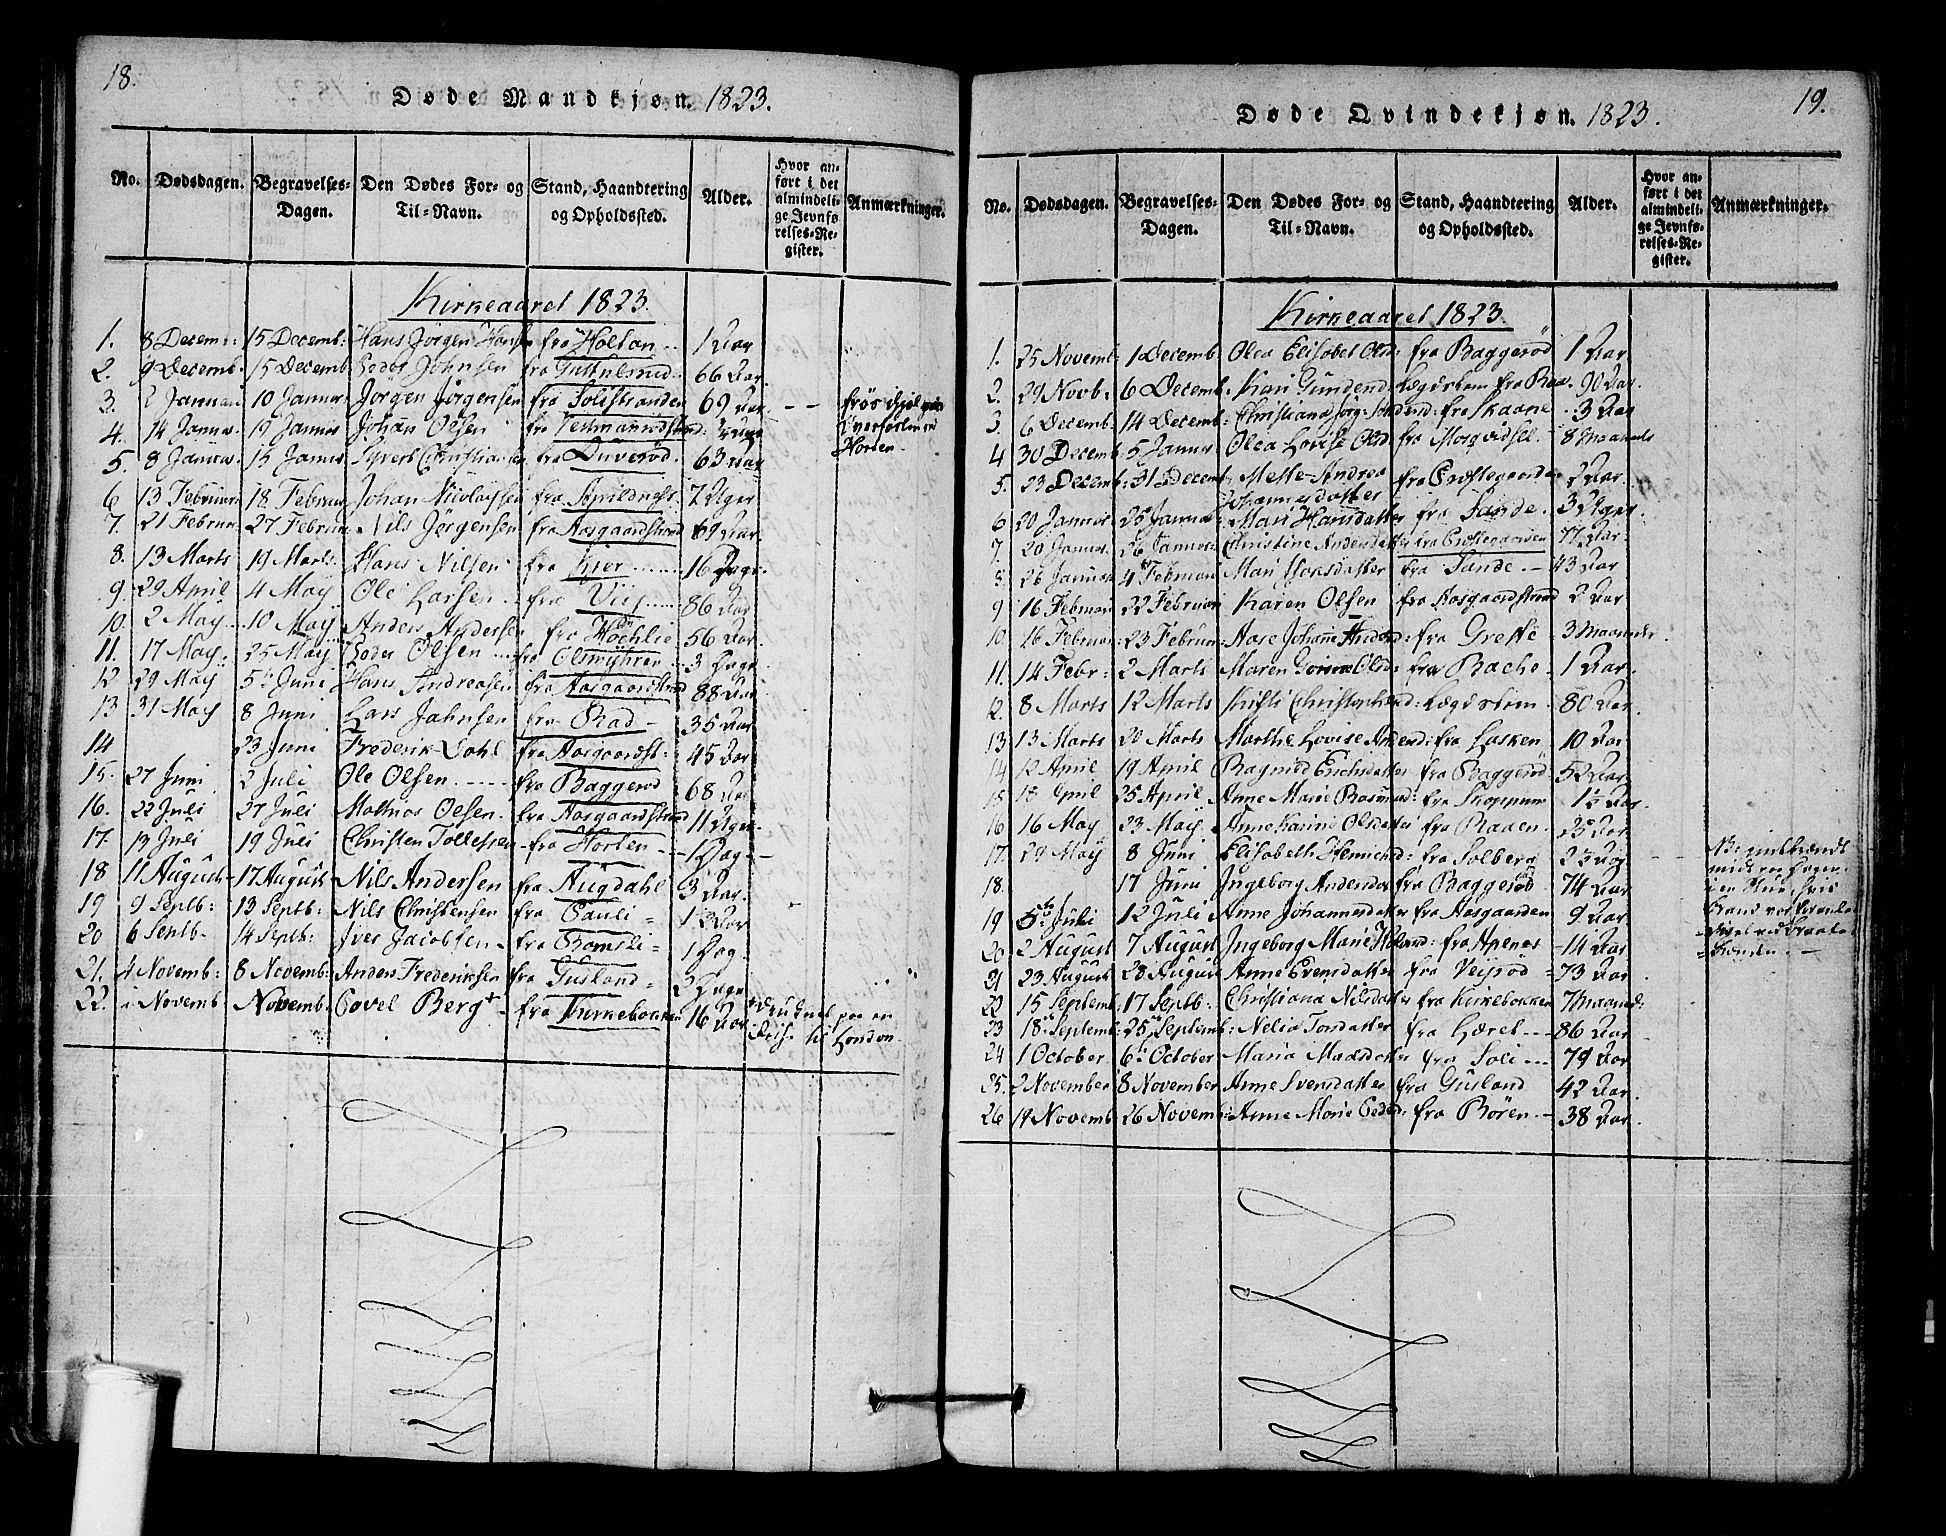 18.
Døde Mandkjøn. 1823.
No. Dødsdagen. Begravelses-Dagen. Den Dødes For- og Til-Navn. Stand, Haandtering og Opholdssted. Alder. Hvor anført i det almindelige Jevnførelses-Register. Anmærkninger.
Kirkeaaret 1823.
1. 8 Decemb: 15 Decemb: Hans Jörgen Hans fra Holtan 1 Aar
2. 9 Decemb. 15 Decemb Peder Johnsen fra 66 Aar.
3. 2 Januari 10 Januar Jörgen Jörgensen fra Solistranden 69 Aar. - -
4. 14 Januar. 19 Januar Johan Olsen fra
5. 8 Januar. 15 Januar Syvert Christiansen fra Duveröd. 63 Aar Horten.
6 13 Februar 18 Februar Johan Nicolaysen fra 7 Uger
7. 21 Februar 27 Februar Nils Jörgensen fra Aasgaardstrand 69 Aar.
8. 13 Marts 19 Marts Hans Nilsen fra Kier 16 Dage.
9. 29 April 4 May Ole Larsen fra Viig 86 Aar
10. 2 May 10 May Anders Andersen fra 56 Aar.
11. 17 May. 25 May Peder Olsen fra 3 Dage
12 29 May 5 Juni Hans Andreasen fra Aasgaardstrand 88 Aar.
13 31 May 8 Juni Lars Jahnsen fra Rad 35 Aar
14 23 Juni Frederik Dahl fra Aasgaardst. 45 Aar
15. 27 Juni 2 Juli Ole Olsen fra Baggeröd 68 Aar
16. 22 Juli 27 Juli Mathias Olsen. fra Aasgaardstrand 11 Uger
17. 13 Juli 19 Juli Christen Tollefsen fra Horten 1 Dag
18 11 August 17 August Nils Andersen fra Augdahl 3 Aar.
19 9 Septb: 13 Septb: Nils Christensen fra Pauli 1 Aar
20 6 Septb. 14 Septb: Iver Jacobsen fra Ramsli 1 Dag
21. 4 Novemb: 8 Novemb: Anders Frederiksen fra Gusland 3 Dage
22. i Novemb Novemb: Povel Berg fra Kirkebakken 16 Aar druknet paa en Reise til London
19.
Døde Qvindekjøn. 1823.
No. Dødsdagen. Begravelses-Dagen. Den Dødes For- og Til-Navn. Stand, Haandtering og Opholdssted. Alder. Hvor anført i det almindelige Jevnførelses-Register. Anmærkninger.
Kirkeaaret 1823.
1. 25 Novemb: 1 Decemb. Olea Elisabet Olsd: fra Baggeröd 1 Aar.
2. 29 Novb: 6 Decemb: Kari Gundersd: Lægdslem fra 90 Aar.
3. 6 Decemb. 14 Decemb: fra Skaane 3 Aar
4 30 Decemb: 5 Januar Olea Lovise Olsd: fra 8 Maaneds
5. 23 Decemb: 31 Decemb: Mette Andrea Johannesdatter fra Præstegaarden 2 Aar.
6 20 Januar. 25 Januar Mari Hansdatter fra Sande. 3 Uger
7. 20 Januar. 26 Januar: Christine Andersdatter fra Præstegaarden 77 Aar.
8. 26 Januar 4 Februari Mari Isaksdatter fra Sande. 43 Aar
9 16 Februari 22 Februari Karen Olsen fra Aasgaardstrand 2 Aar.
10. 16 Februar: 23 Februar: Aase Johanne Andersd: fra Grette 3 Maaneder.
11. 14 Febr: 2 Marts Maren Olsd: fra Bache 1 Aar.
12. 8 Marts 12 Marts Kirsti Christophersd: Lægdslem 80 Aar.
13 13 Marts 20 Marts Marthe Lovise Andersd: fra Lasken 10 Aar
14 12 April 19 April Ragnild Erichsdatter fra Baggeröd 52 Aar.
15 18 April 25 April Anne Marie Rasmusd: fra Skoppum 1½ Aar.
16 16 May 23 May Anne Karine Olsdatter fra Raaen. 25 Aar.
17. 29 May 8 Juni Elisabeth Hemiends: fra Solberg 2½ Aar
18. 17 Juni Ingeborg Andersdat fra Baggeröd 74 Aar
19 5te Juli 12 Juli Anne Johannesdatter fra Aasgaarden 9 Aar
20 2 August 7 August Ingeborg Marie fra Apenes 14 Aar
21 23 August 28 August Anne Evensdatter fra 73 Aar.
22 15 Septemb: 17 Septb: Christiana Nilsdatter fra Kirkebakken 7 Maaned:
23 18 Septemb: 25 Septemb: Nelia Torsdatter fra 86 Aar
24 1 October 6 October Maria Madsdatter fra Soli 79 Aar
25. 2 November 8 November Anne Svensdatter fra Gusland 42 Aar
26 19 Novemb. 26 Novemb: Anne Marie Pedersd: fra Bören 38 Aar.